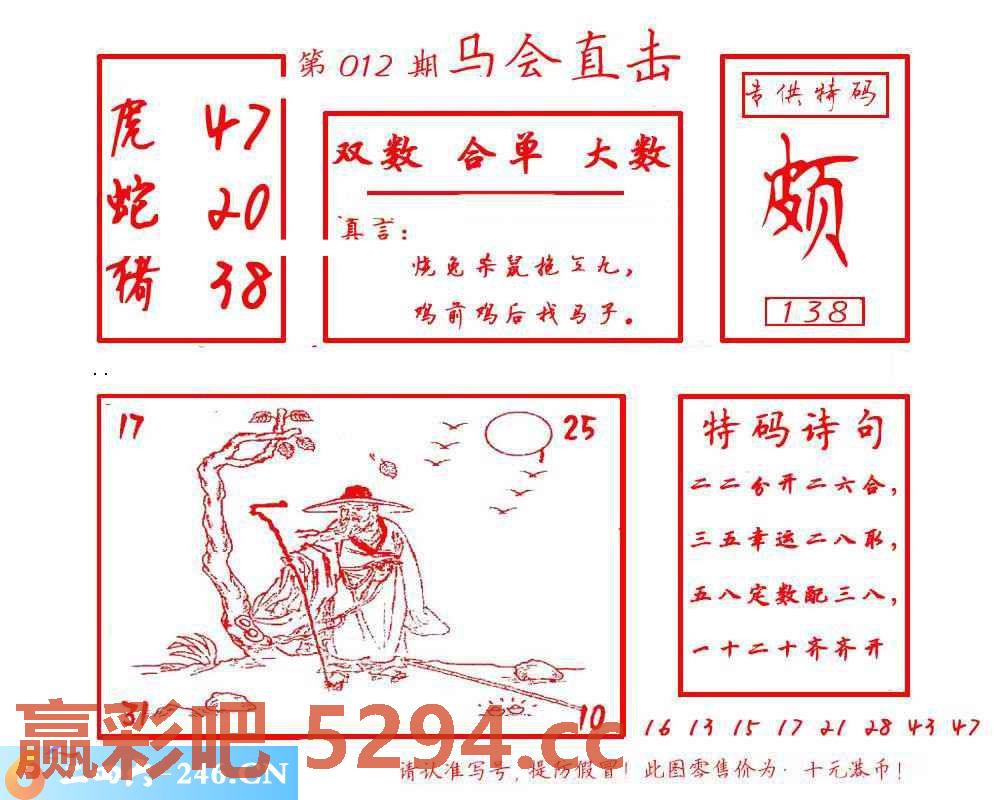 第 012 期 马会直击
虎 47
蛇 20
猪 38
双数 合单 大数
真言：
烧兔杀鼠拖三九，
鸡前鸡后找马子。
专供特码
颇
138
17
25
31
10
特码诗句
二二分开二六合，
三五幸运二八取，
五八定数配三八，
一十二十齐齐开
16 13 15 17 21 28 43 47
赢彩吧 5294.cc
-246.CN
请认准写号，提防假冒！此图零售价为．十元港币！